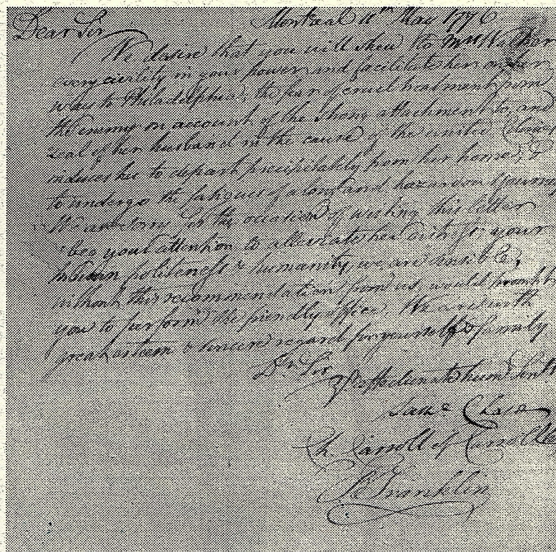 Montreal 11th May 1776
Dear Sir
We desire that you will shew to Mrs Walker
every civility in your power and facilitate her on her
way to Philadelphia; the fear of cruel treatment from
the enemy on account of the strong attachment to, and
zeal of her husband in the cause of the united
induces her to depart precipitately from her home, &
to undergo the fatigues of a long and hazardous journey.
We are sorry for the occasion of writing this letter
& beg your attention to alleviate her distress; your
known politeness & humanity, we are sensible,
without this recommendation from us, would prompt
you to perform the friendly office. We are with
great esteem & sincere regard for yourself & family
Dr Sir
Yr affectionate hum. Servts
Saml Chase
Ch. Carroll of Carrollton
B Franklin